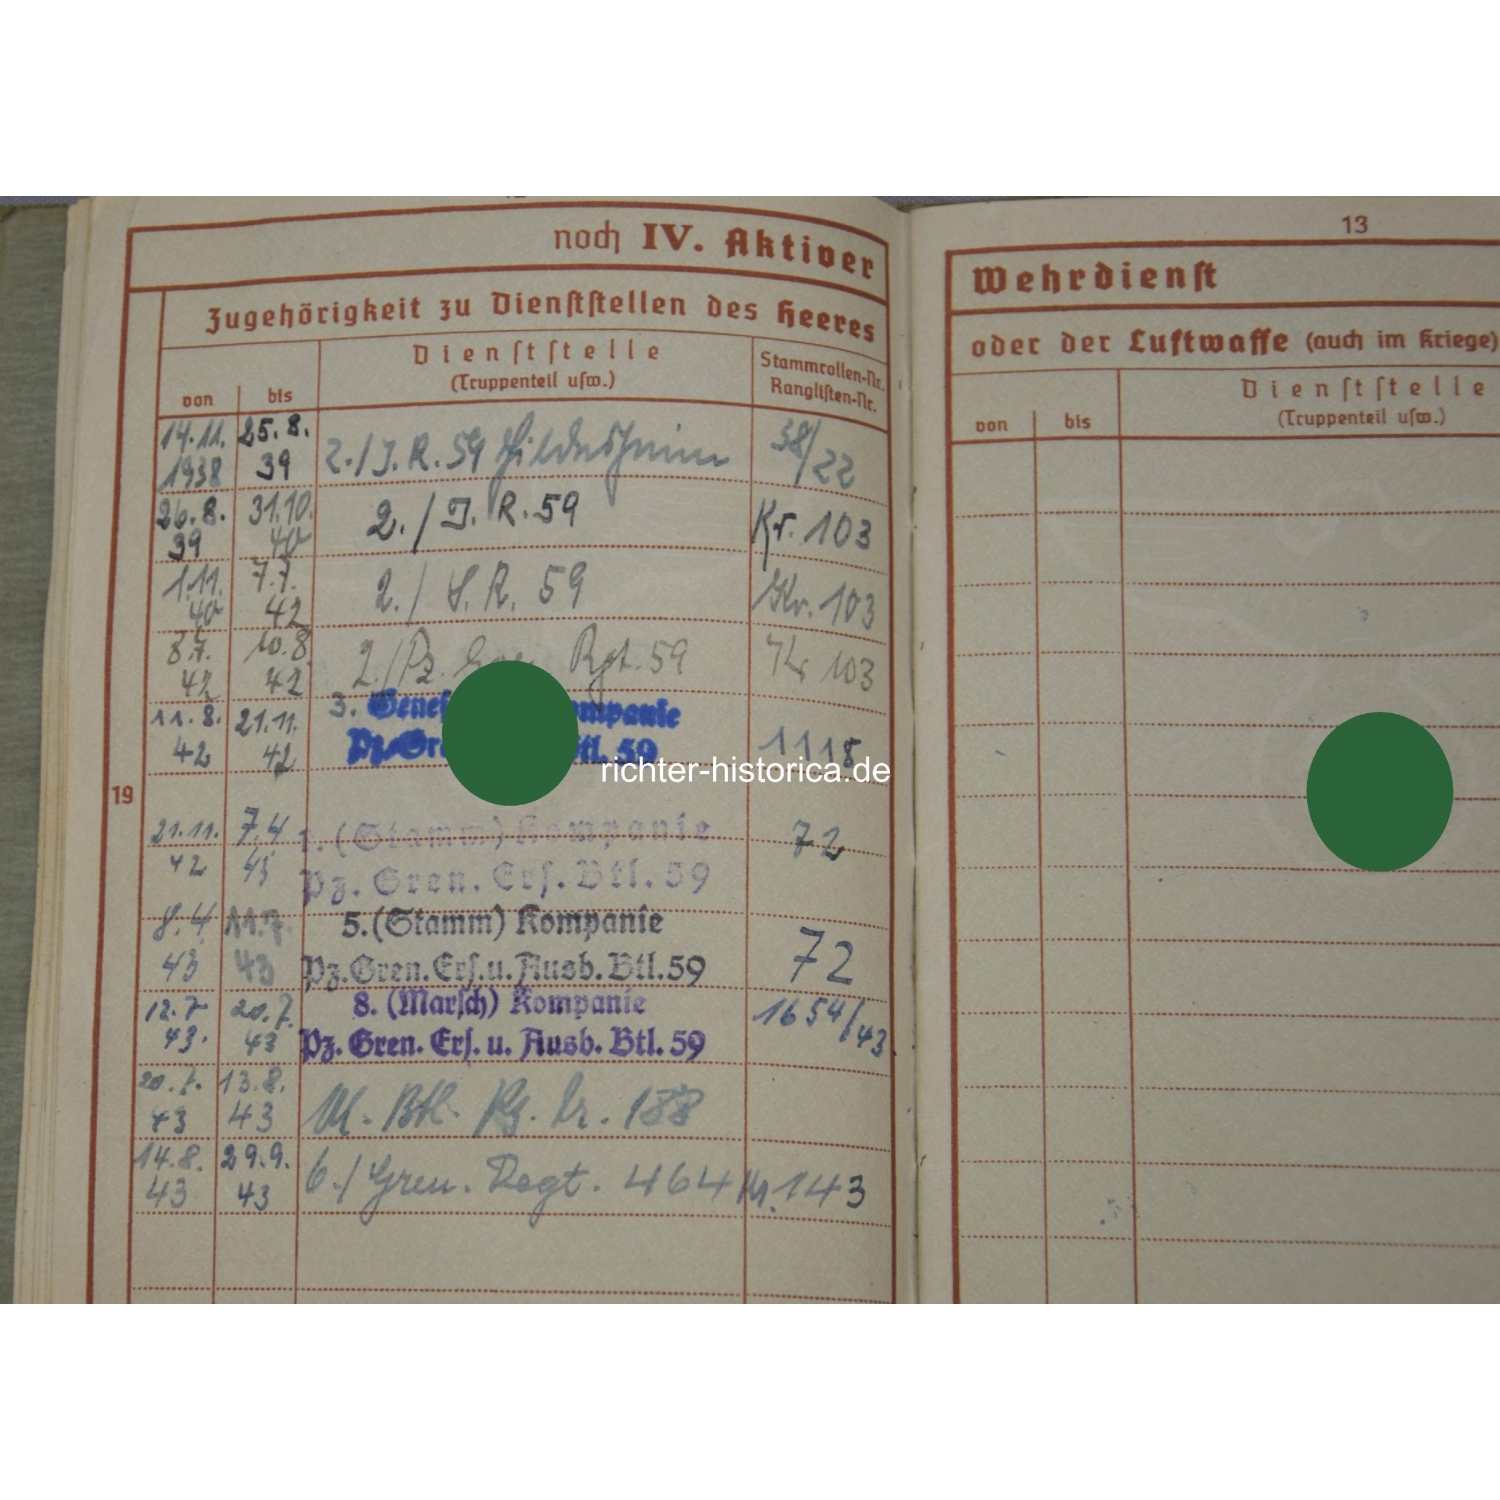 noch IV. Aktiver
Zugehörigkeit zu Dienststellen des Heeres
von
bis
Dienststelle
(Truppenteil usw.)
Stammrollen-Nr.
Ranglisten-Nr.
14.11. 1938
25.8. 39
2./J.R. 59 Hildesheim
38/22
26.8. 39
31.10. 40
2./J.R. 59
Kr. 103
1.11. 40
7.7. 42
2./S.R. 59
Kr. 103
8.7. 42
10.8. 42
2./Pz. Rgt. 59
Kr 103
11.8. 42
21.11. 42
3. Genes ompanie
Pz.Gre tl. 59
1118
19
21.11. 42
7.4 43
1.(Stamm) Kompanie
Pz. Gren. Ers. Btl. 59
72
8.4 43
11.7. 43
5.(Stamm) Kompanie
Pz.Gren.Ers.u. Ausb. Btl.59
72
12.7 43.
20.7. 43
8. (Marsch) Kompanie
Pz. Gren. Ers. u. Ausb. Btl. 59
1654/43
20.7. 43
13.8. 43
M. Btl. 188
14.8. 43
29.9. 43
6./Gren. Regt. 464
Kr. 143
13
Wehrdienst
oder der Luftwaffe (auch im Kriege)
von
bis
Dienststelle
(Truppenteil usw.)
richter-historica.de